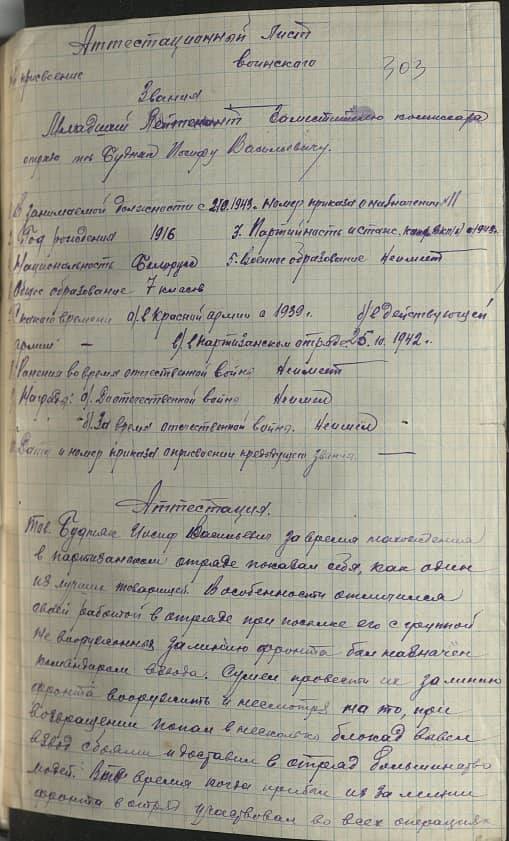 Аттестационный Лист
303
присвоение воинского
Звания
Младший Лейтенант Заместителю комиссара
отряда тов Будняк Иосифу Васильевичу.
В занимаемой должности с 1943. Номер приказа о назначении
Год рождения 1916 3. Партийность и стаж с 1943г.
Национальность Белорус 5. Военное образование Неимеет
Общее образование 7 классов
С какого времени а) в Красной армии с 1939г. б) в действующей
армии — в) в партизанском отряде 25.10.1942г.
Ранения во время отечественной войны Неимеет
Награды: а) До отечественной войны Неимел
- б) За время отечественной войны. Неимел -
Дата и номер приказа о присвоении предыдущего звания. —
Аттестация.
Тов. Будняк Иосиф Васильевич за время нахождения
в партизанском отряде показал себя, как один
из лучших товарищей. В особенности отличился
своей работой в отряде при посылке его с группой
не вооруженных за линию фронта был назначен
командиром взвода. Сумел провести их за линию
фронта вооружить и несмотря на то, при
возвращении попал в несколько блокад вывел
взвод с боями и доставил в отряд большинство
людей. В то время когда прибыл из за линии
фронта в отряд участвовал во всех операциях